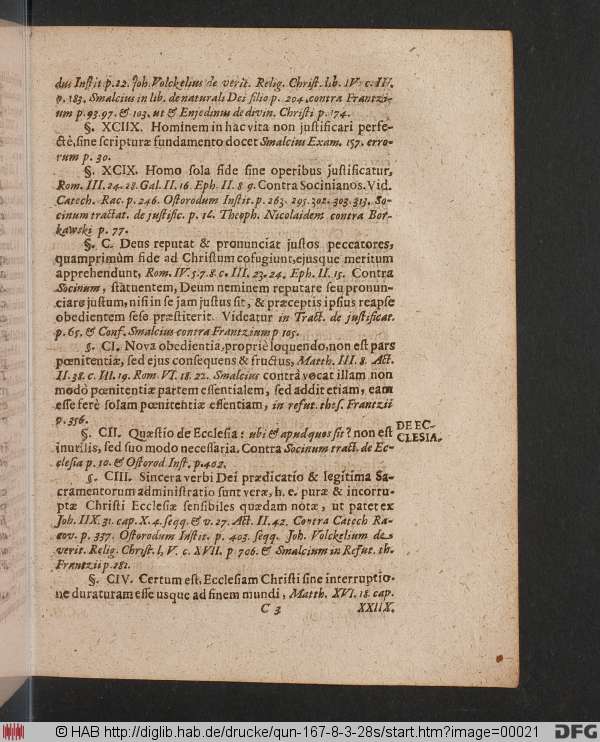 dus Instit p.12. Joh. Volckelius de verit. Relig. Christ. lib. IV. c. IV.
p. 183. Smalcius in lib. de naturali Dei filio p. 204. contra Frantzi-
um p. 93. 97. & 103. ut & Enjedinus de divin. Christi p. 174.
§. XCIIX. Hominem in hac vita non justificari perfe-
ctè, sine scripturæ fundamento docet Smalcius Exam. 157. erro-
rum p. 30.
§. XCIX. Homo sola fide sine operibus justificatur,
Rom. III. 24. 28. Gal. II. 16. Eph. II. 8 9. Contra Socinianos. Vid.
Catech. Rac. p. 246. Ostorodum Instit. p. 263. 295. 302. 303. 313. So-
cinum tractat. de justific. p. 16. Theoph. Nicolaidem contra Bor-
kawski p. 77.
§. C. Deus reputat & pronunciat justos peccatores,
quamprimùm fide ad Christum cofugiunt, ejusque meritum
apprehendunt, Rom. IV. 5. 7. 8. c. III. 23. 24. Eph. II. 15. Contra
Socinum, statuentem, Deum neminem reputare seu pronun-
ciare justum, nisi in se jam justus sit, & præceptis ipsius reapse
obedientem sese præstiterit. Videatur in Tract. de justificat.
p. 65. & Conf. Smalcius contra Frantzium p 105.
§. CI. Nova obedientia, propriè loquendo, non est pars
pœnitentiæ, sed ejus consequens & fructus, Matth. III. 8. Act.
II. 38. c. III. 19. Rom. VI. 18. 22. Smalcius contrà vocat illam non
modò pœnitentiæ partem essentialem, sed addit etiam, eam
esse ferè solam pœnitentiæ essentiam, in refut. thes. Frantzii
p. 356.
§. CII. Quæstio de Ecclesia: ubi & apud quos sit? non est
inutilis, sed suo modo necessaria. Contra Socinum tract. de Ec-
clesia p. 10. & Ostorod Inst. p. 402.
DE EC-
CLESIA.
§. CIII. Sincera verbi Dei prædicatio & legitima Sa-
cramentorum administratio sunt veræ, h. e. puræ & incorru-
ptæ Christi Ecclesiæ sensibiles quædam notæ, ut patet ex
Joh. IIX. 31. cap. X. 4. seqq. & v. 27. Act. II. 42. Contra Catech Ra-
cov. p. 337. Ostorodum Instit. p. 403. seqq. Joh. Volckelium de
verit. Relig. Christ. l, V. c. XVII. p 706. & Smalcium in Refut. th.
Frantzii p. 181.
§. CIV. Certum est, Ecclesiam Christi sine interruptio-
ne duraturam esse usque ad finem mundi, Matth. XVI. 18. cap.
C 3 XXIIX.
© HAB http://diglib.hab.de/drucke/qun-167-8-3-28s/start.htm?image=00021
DFG